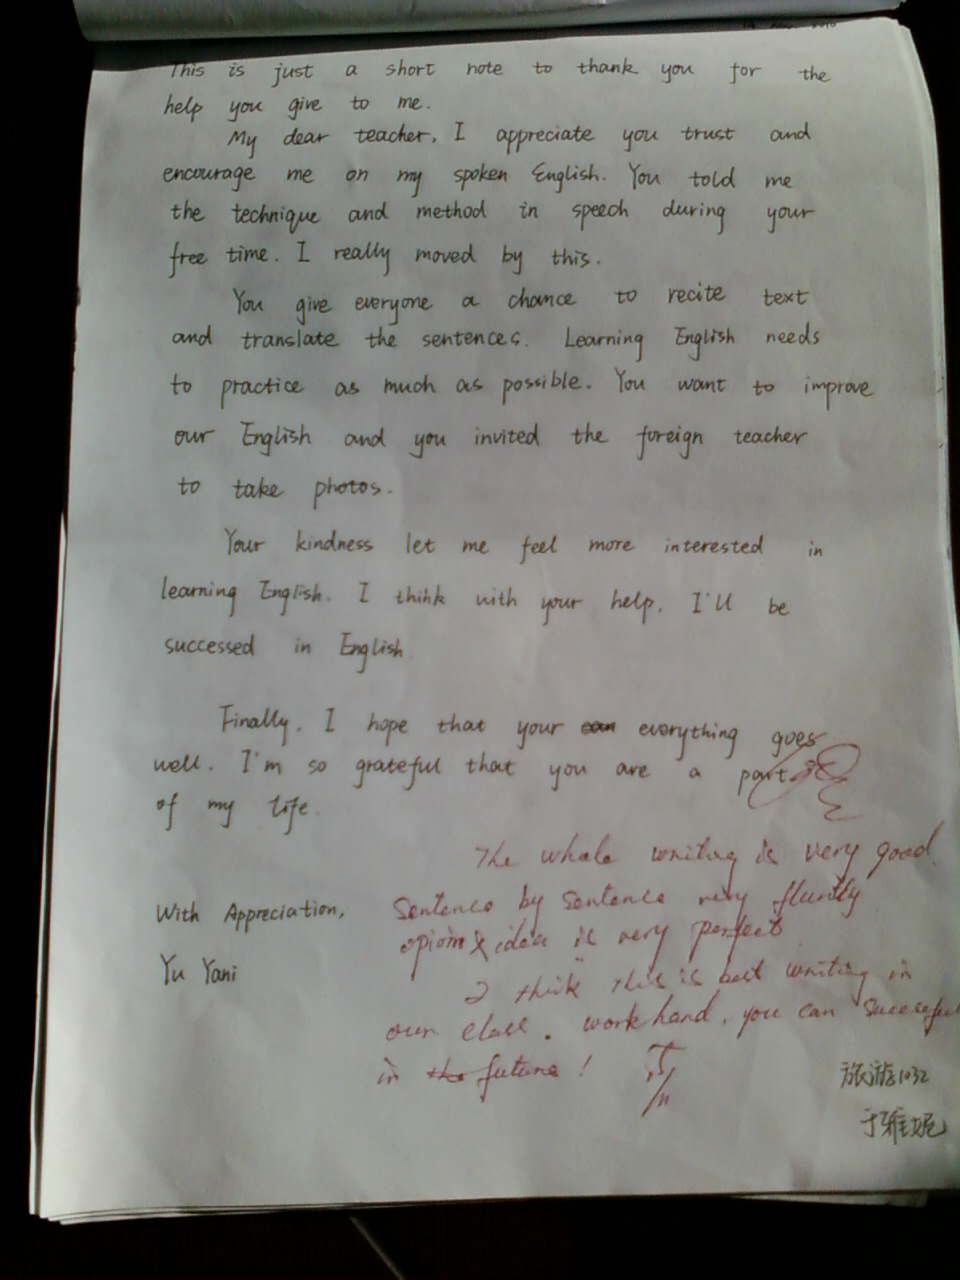 This is just a short note to thank you for the
help you give to me.
My dear teacher, I appreciate you trust and
encourage me on my spoken English. You told me
the technique and method in speech during your
free time. I really moved by this.
You give everyone a chance to recite text
and translate the sentences. Learning English needs
to practice as much as possible. You want to improve
our English and you invited the foreign teacher
to take photos.
Your kindness let me feel more interested in
learning English. I think with your help, I'll be
successed in English
Finally, I hope that your everything goes
well. I'm so grateful that you are a part
of my life.
The whole writing is very good.
With Appreciation,
Sentence by sentence very fluntly
opiom & idea is very perfect
Yu Yani
I think this is best writing in
our class. work hand, you can successful
in the future!
旅游1032
于雅妮